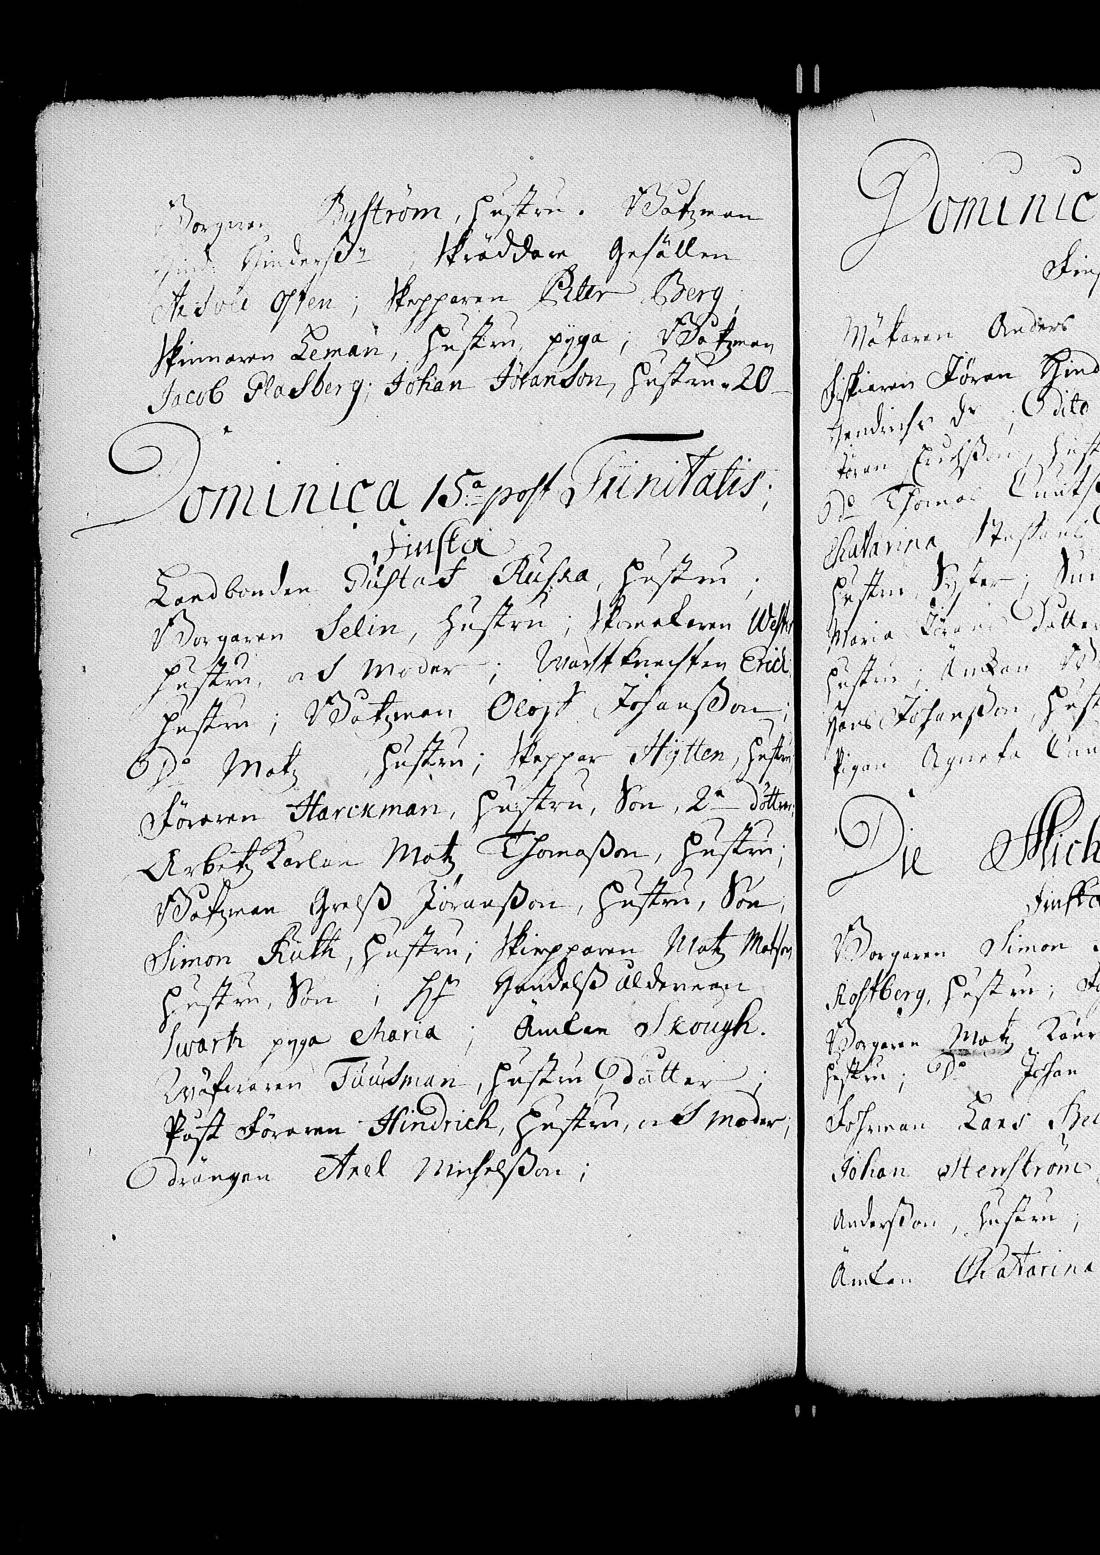 Borgaren Byström, hustru. Båtzman
Hind: Hinderß: ; Skräddare Gesällen
Skepparen Peter Berg;
Skinnaren Leman, hustru, pyga; Båtzman
Jacob Glasberg; Johan Johanson, hustru. 20
Dominica 15a post Trinitatis;
Finska
Landbonden Gustaf Russa, hustru;
Borgaren Selin, hustru; Skomakaren
hustru, Moder; Wachtknechten Erich
hustru; Båtzman Oloff Johanßon;
Do Matz, hustru; Skeppar Hytten, hustru
Föraren Harckman, hustru, Son, 2a döttrar
Arbetz Karlan Matz Thomaßon, hustru;
Båtzman Grelß Jöranßon, hustru, Son,
Simon Ruth, hustru; Skepparen Matz Matßon
hustru, Son; Hr Handelß ålderman
Swartz pyga Maria; Änkan Skough.
Tuusman, hustru dåtter;
Påst Föraren Hindrich, hustru, Moder;
drängen Axel Michelßon;
Dominic
Fins
Målaren Anders
Fiskaren Jöran Hind
Hendrichs dr; Dito
Jöran Erichßon, hust
Do Thomas Knuts
Catarina Staffans
hustru, Syster;
Maria Jörans Dotter
hustru, Änkan
Hans Johanßon, hust
Pigan Agneta
Die Mich
Finska
Borgaren Simon
Rostberg, hustru;
Borgaren Matz
hustru; Do Johan
Fohrman Lars
Johan Stenström
Anderßon, hustru;
Änkan Catarina